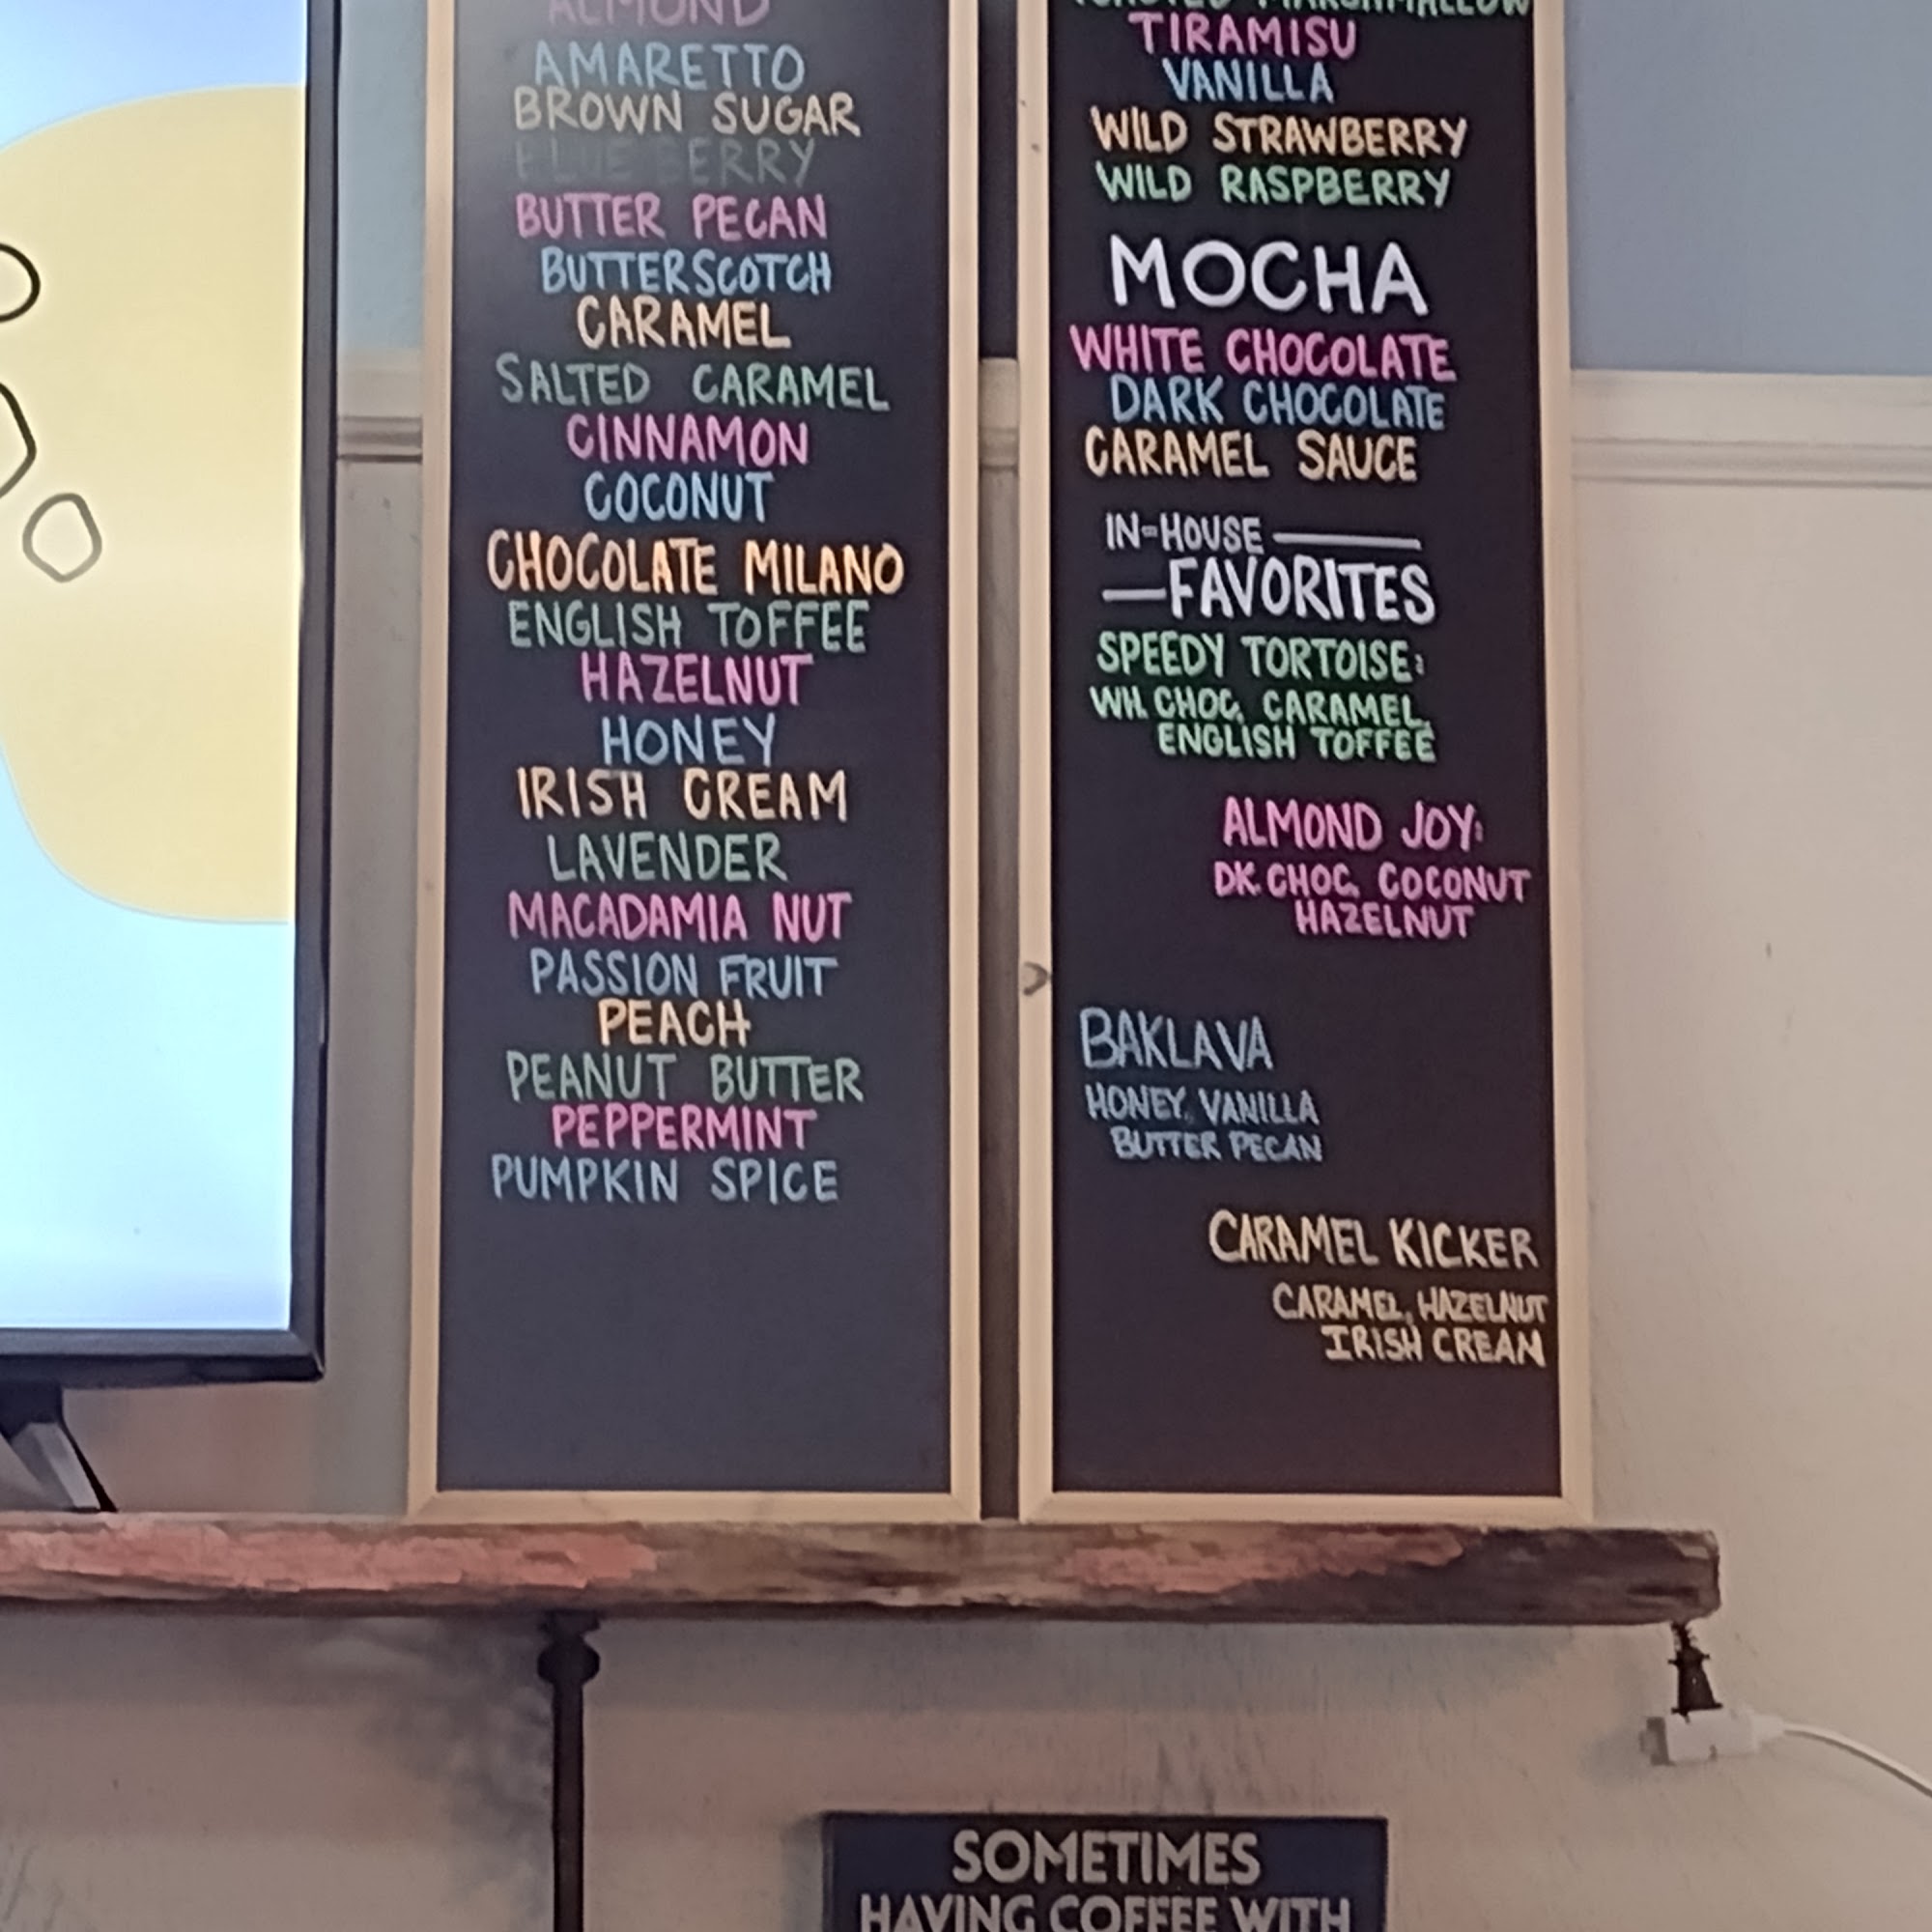 ALMOND
AMARETTO
BROWN SUGAR
BLUEBERRY
BUTTER PECAN
BUTTERSCOTCH
CARAMEL
SALTED CARAMEL
CINNAMON
COCONUT
CHOCOLATE MILANO
ENGLISH TOFFEE
HAZELNUT
HONEY
IRISH CREAM
LAVENDER
MACADAMIA NUT
PASSION FRUIT
PEACH
PEANUT BUTTER
PEPPERMINT
PUMPKIN SPICE
TOASTED MARSHMALLOW
TIRAMISU
VANILLA
WILD STRAWBERRY
WILD RASPBERRY
MOCHA
WHITE CHOCOLATE
DARK CHOCOLATE
CARAMEL SAUCE
IN-HOUSE
FAVORITES
SPEEDY TORTOISE:
WH. CHOC, CARAMEL,
ENGLISH TOFFEE
ALMOND JOY:
DK. CHOC, COCONUT
HAZELNUT
BAKLAVA
HONEY, VANILLA
BUTTER PECAN
CARAMEL KICKER
CARAMEL, HAZELNUT
IRISH CREAM
SOMETIMES
HAVING COFFEE WITH